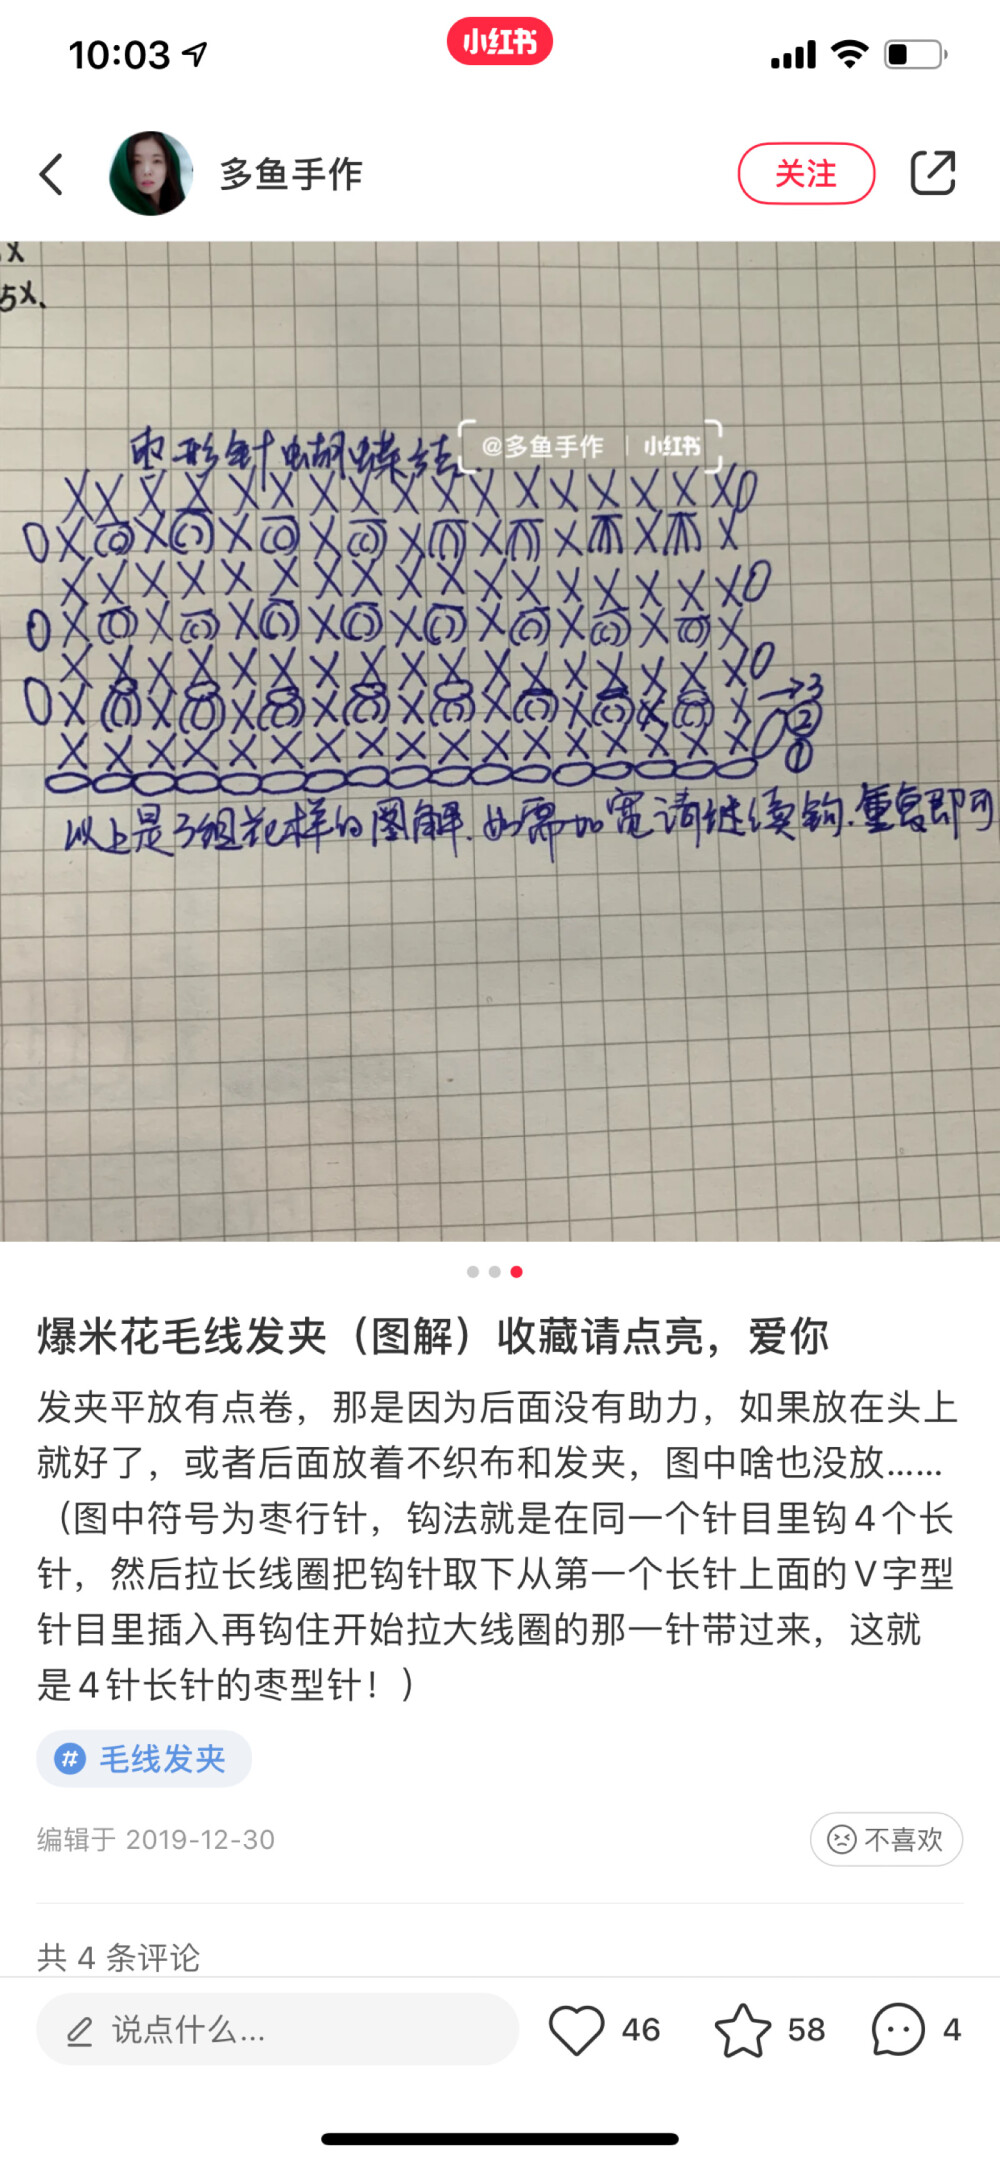 10:03
小红书
多鱼手作
关注
5X、
枣形针蝴蝶结
@多鱼手作 | 小红书
X X X X X X X X X X X X X X X X X 0
0 X X X X X X X X X
X X X X X X X X X X X X X X X X X 0
0 X X X X X X X X X
X X X X X X X X X X X X X X X X X 0
0 X X X X X X X X X → 3
②
X X X X X X X X X X X X X X X X X 0 ①
以上是3组花样的图解.如需加宽请继续钩.重复即可
爆米花毛线发夹（图解）收藏请点亮，爱你
发夹平放有点卷，那是因为后面没有助力，如果放在头上
就好了，或者后面放着不织布和发夹，图中啥也没放……
（图中符号为枣行针，钩法就是在同一个针目里钩4个长
针，然后拉长线圈把钩针取下从第一个长针上面的V字型
针目里插入再钩住开始拉大线圈的那一针带过来，这就
是4针长针的枣型针！）
# 毛线发夹
编辑于 2019-12-30
不喜欢
共 4 条评论
说点什么...
46
58
4